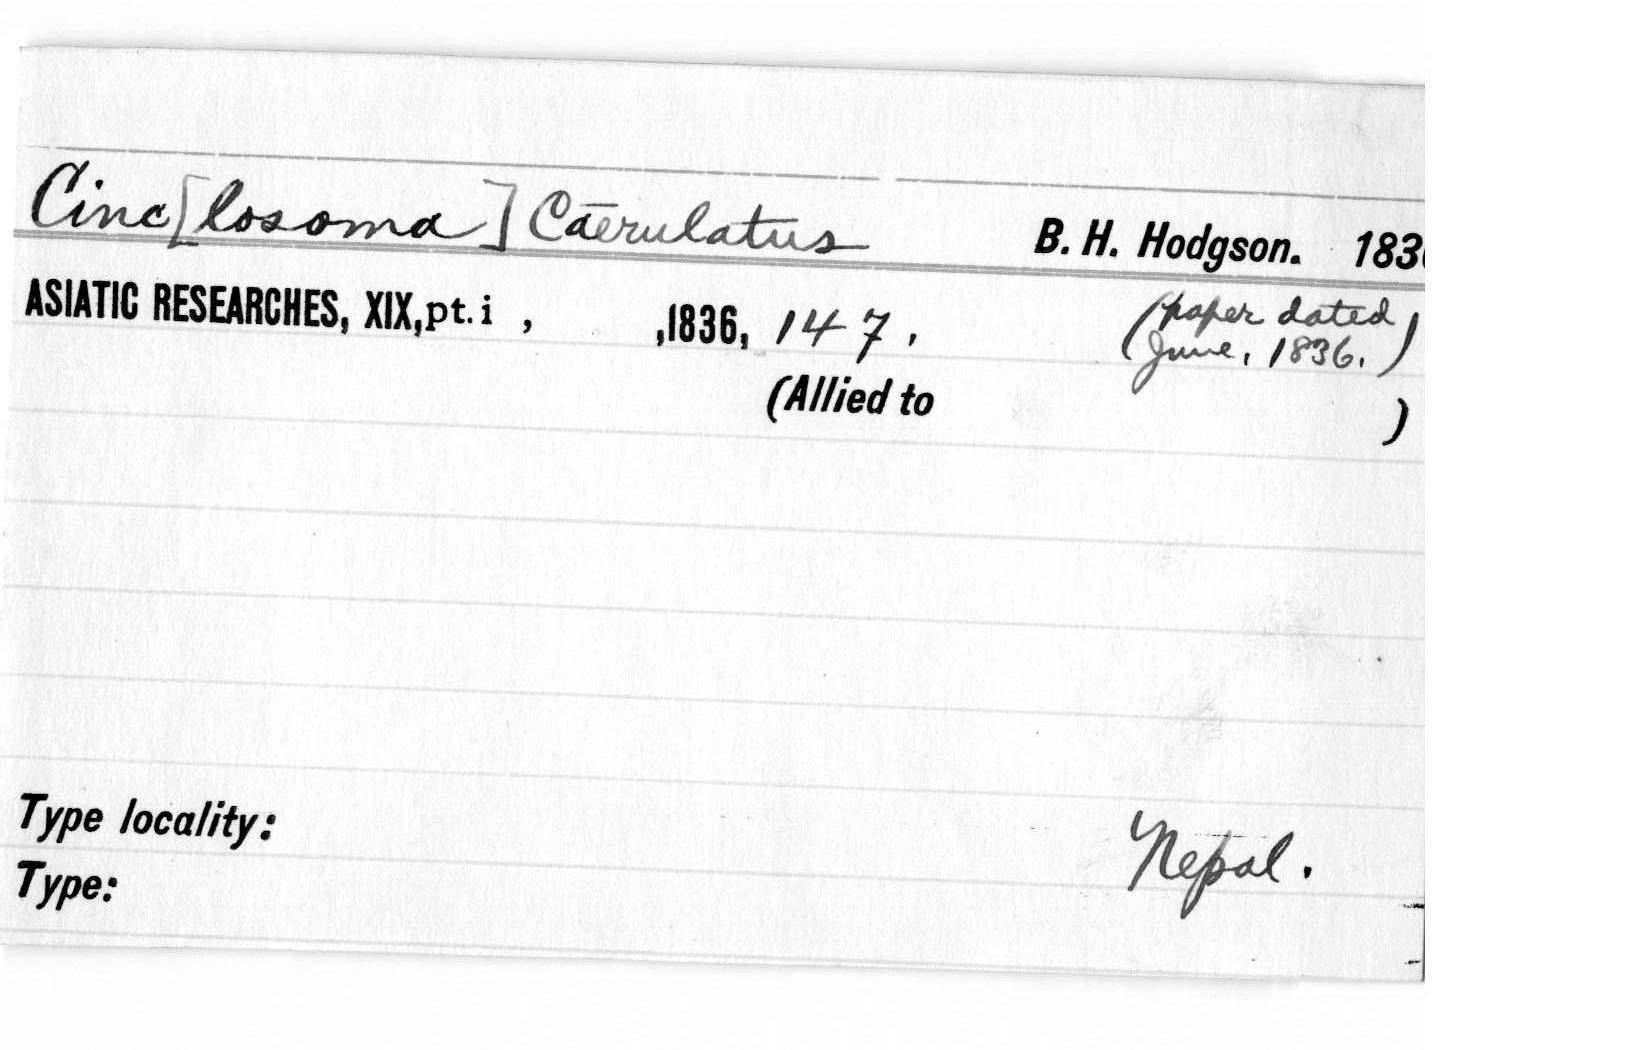 Cinc[losoma] Caerulatus B. H. Hodgson. 183
ASIATIC RESEARCHES, XIX, pt. i , ,1836, 147. (paper dated
June, 1836.)
(Allied to )
Type locality: Nepal.
Type: